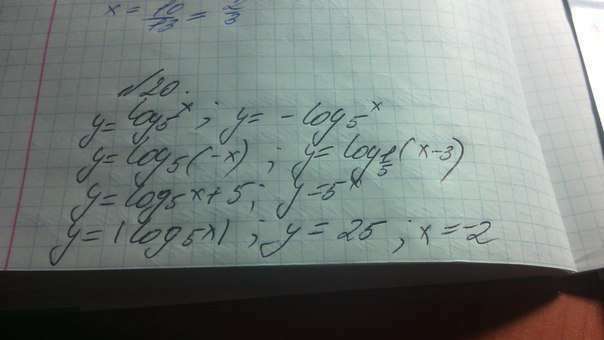 x = 10/15 = 2/3
№20.
y = log₅x ; y = -log₅x
y = log₅(-x) ; y = log₁/₅(x-3)
y = log₅x + 5 ; y = 5ˣ
y = |log₅x| ; y = 25 ; x = -2